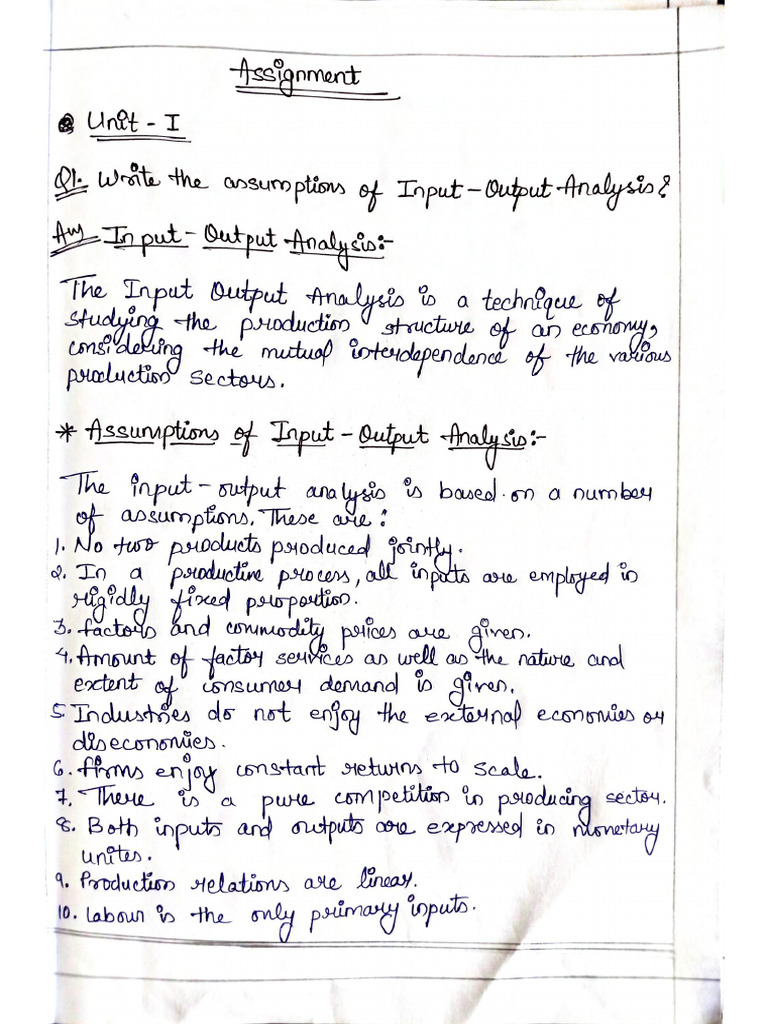 Assignment
Unit - I
Q1. Write the assumptions of Input-Output Analysis?
Ans Input-Output Analysis:-
The Input Output Analysis is a technique of
studying the production structure of an economy,
considering the mutual interdependence of the various
production sectors.
* Assumptions of Input-Output Analysis:-
The input-output analysis is based on a number
of assumptions. These are:
1. No two products produced jointly.
2. In a productive process, all inputs are employed in
rigidly fixed proportion.
3. factors and commodity prices are given.
4. Amount of factor services as well as the nature and
extent of consumer demand is given.
5. Industries do not enjoy the external economies or
diseconomies.
6. firms enjoy constant returns to scale.
7. There is a pure competition in producing sector.
8. Both inputs and outputs are expressed in monetary
unites.
9. Production relations are linear.
10. Labour is the only primary inputs.